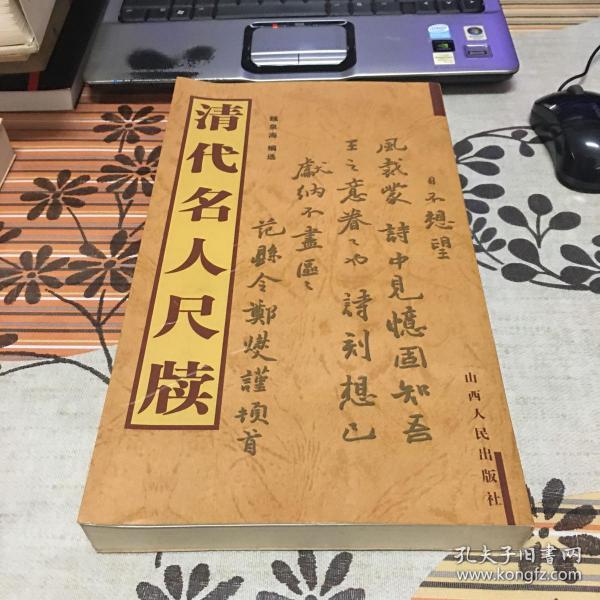 清代名人尺牍
魏泉海 编选
日不想望
風裁蒙 詩中見憶固知吾
王之意眷〻也 詩刻想已
獻納不盡區〻
范縣令鄭燮謹頓首
山西人民出版社
孔夫子旧书网
www.kongfz.com